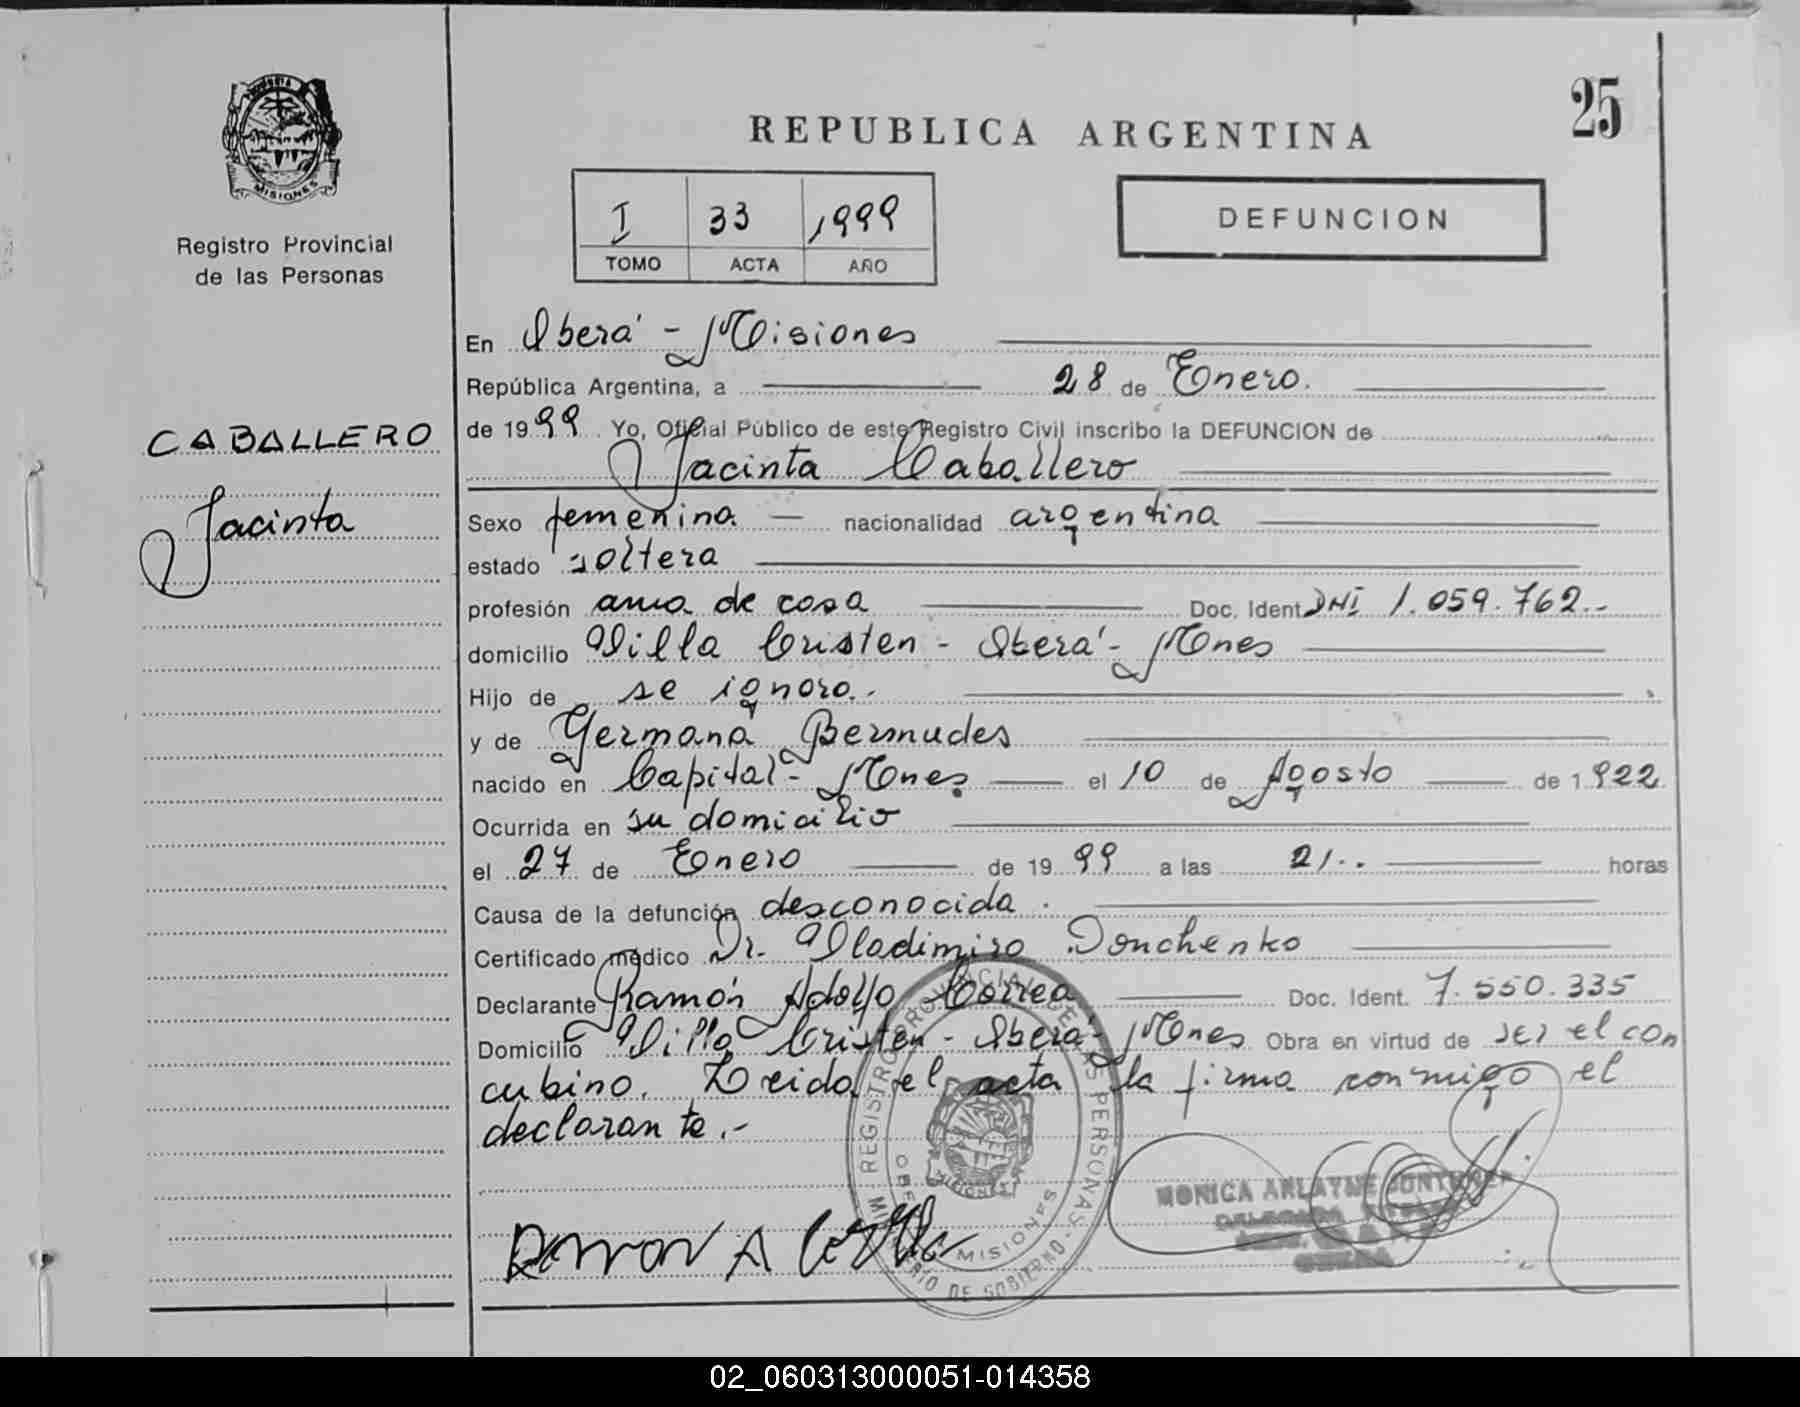 25
REPUBLICA ARGENTINA
MISIONES
Registro Provincial
de las Personas
I 33 1999
TOMO ACTA AÑO
DEFUNCION
CABALLERO
Jacinta
En Oberá - Misiones
República Argentina, a 28 de Enero.
de 1999 Yo, Oficial Público de este Registro Civil inscribo la DEFUNCION de
Jacinta Caballero
Sexo femenina - nacionalidad argentina
estado soltera
profesión ama de casa Doc. Ident DNI 1.059.762.-
domicilio Villa Cristen - Oberá - Mnes
Hijo de se ignora.
y de Germana Bermudes
nacido en Capital - Mnes. el 10 de Agosto de 1922
Ocurrida en su domicilio
el 27 de Enero de 1999 a las 21.. horas
Causa de la defunción desconocida.
Certificado médico Dr. Vladimiro Donchenko
Declarante Ramón Adolfo Correa Doc. Ident. 7.550.335
Domicilio Villa Cristen - Oberá - Mnes Obra en virtud de ser el con
cubino. Leida el acta la firma conmigo el
declarante.-
REGISTRO PROVINCIAL DE LAS PERSONAS - MINISTERIO DE GOBIERNO
MISIONES
MONICA
Ramon A
02_060313000051-014358